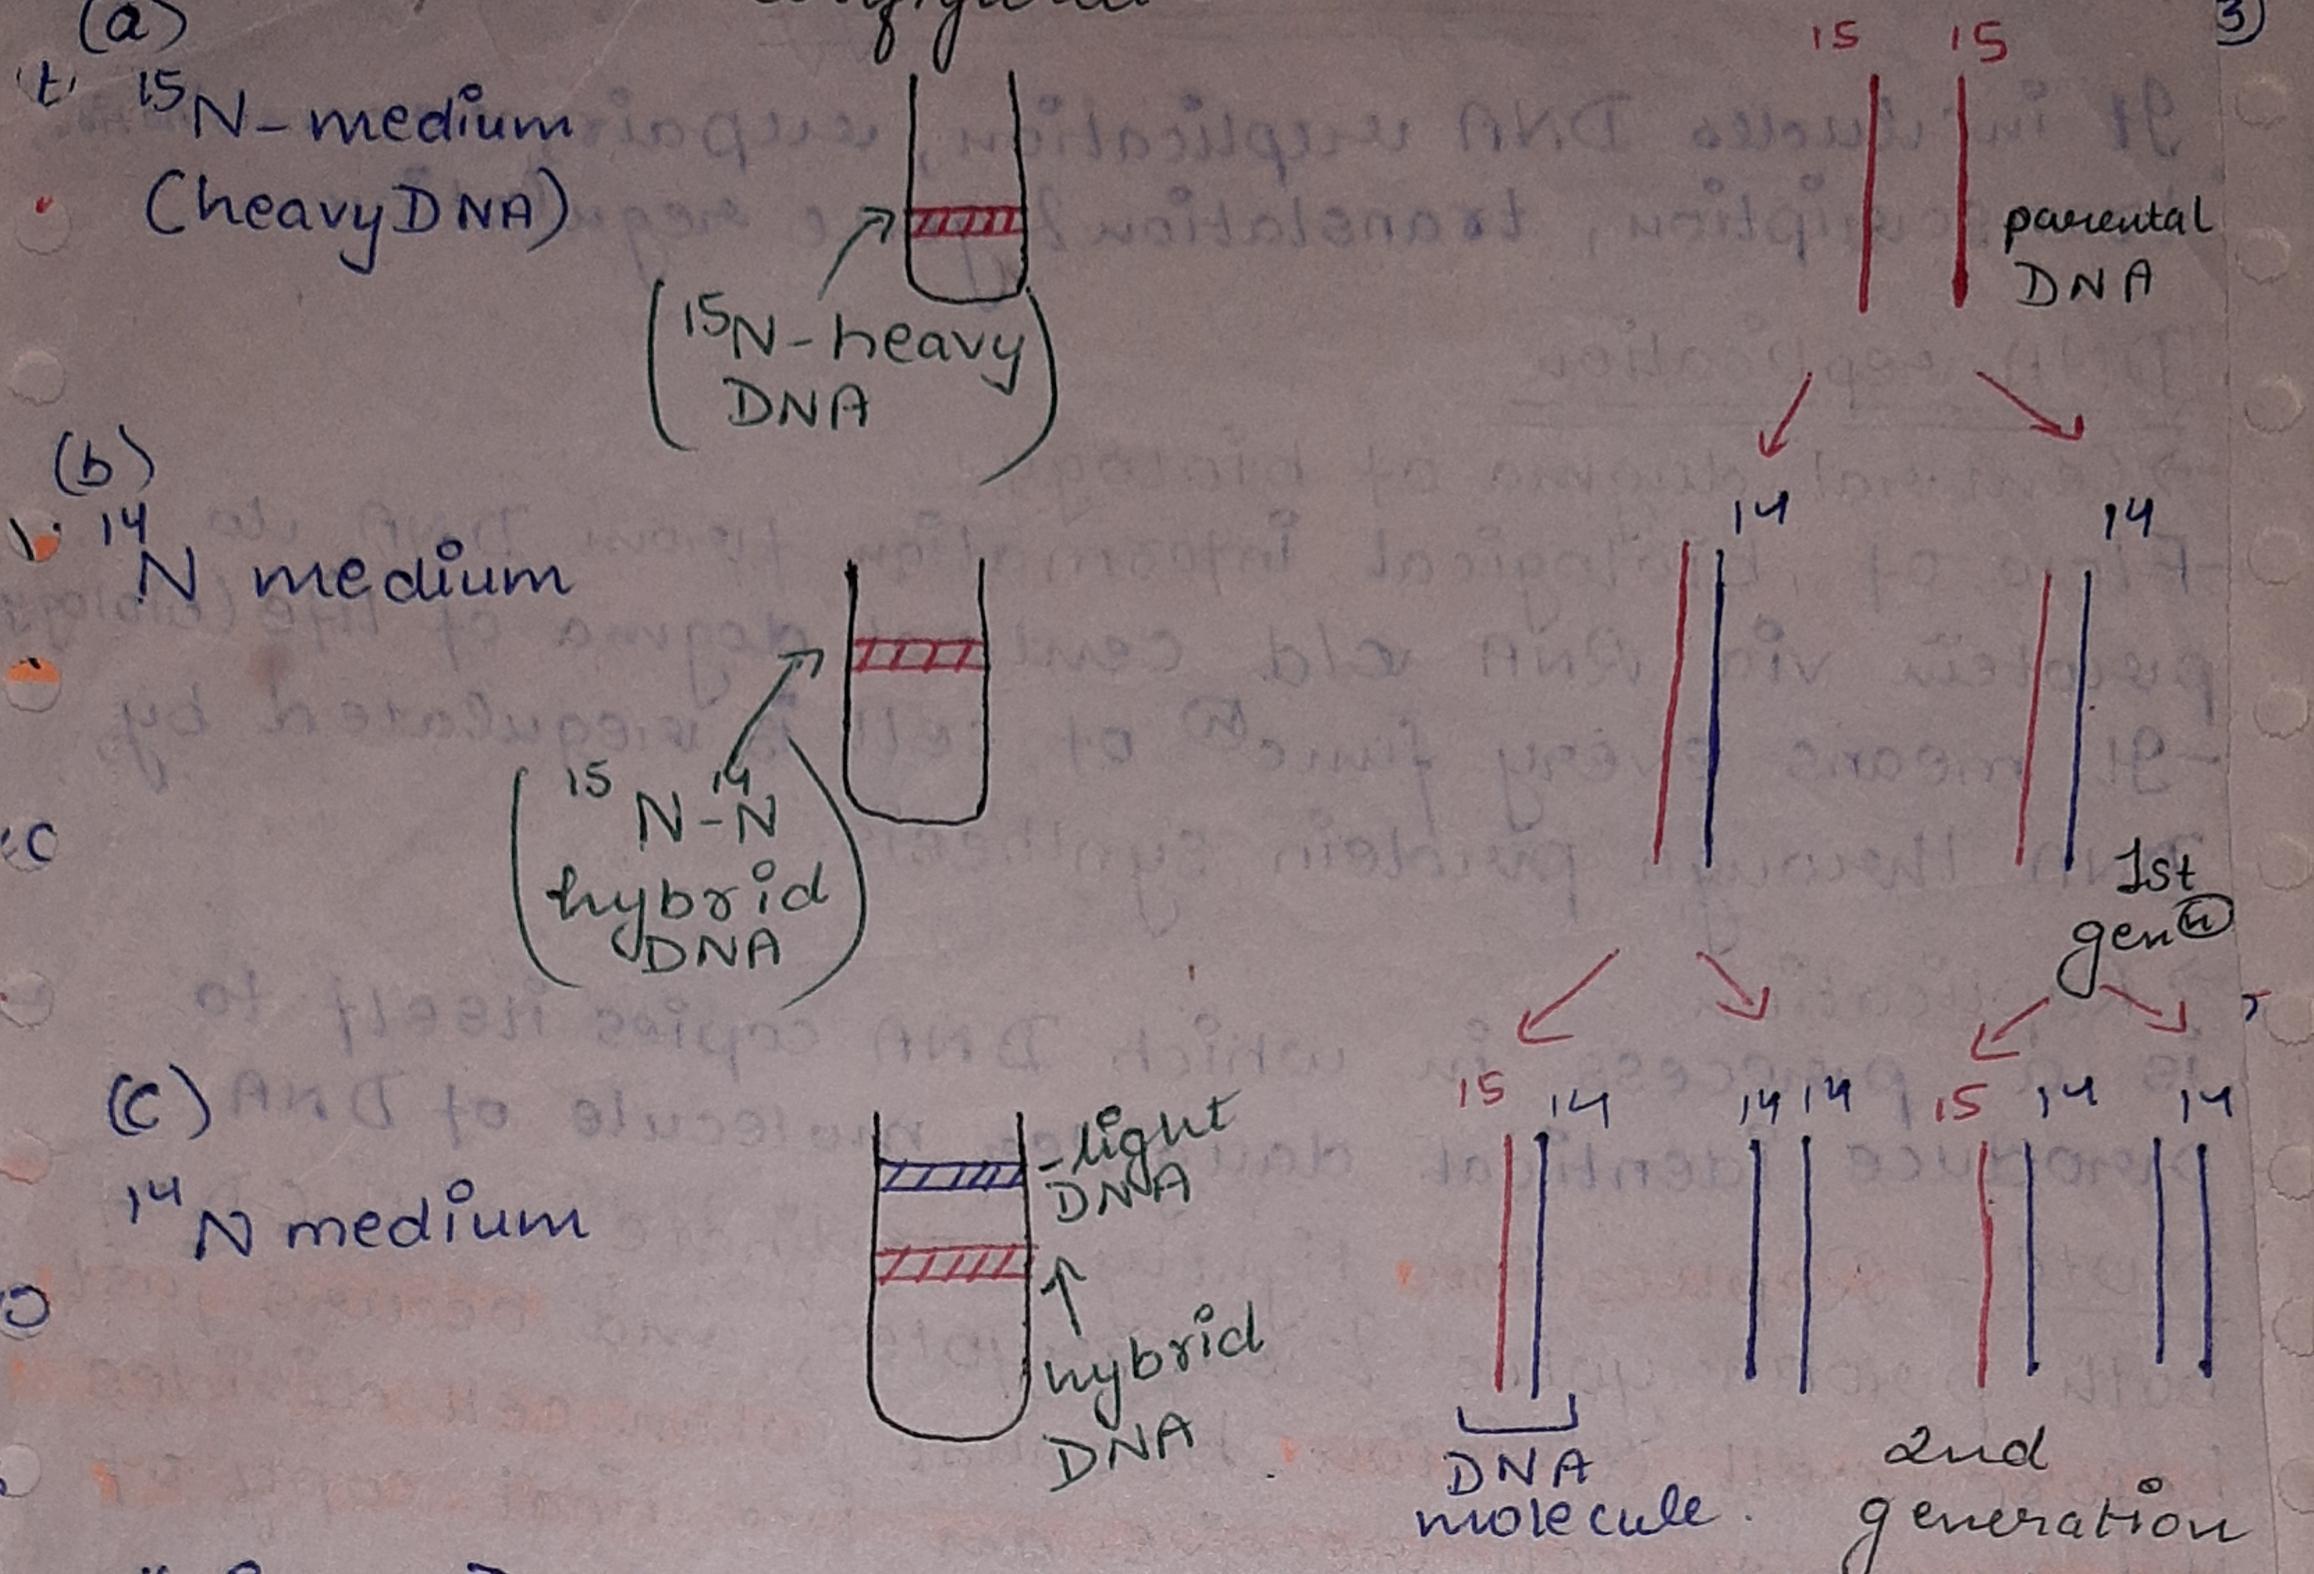 (a)
3)
15 15
15N-medium
(heavy DNA)
parental
DNA
(15N-heavy
DNA)
(b)
14 14
14N medium
(15N-14N
hybrid
DNA)
1st
gen(n)
(C)
15 14 14 14 15 14 14
14N medium
-light
DNA
hybrid
DNA
DNA
molecule.
2nd
generation